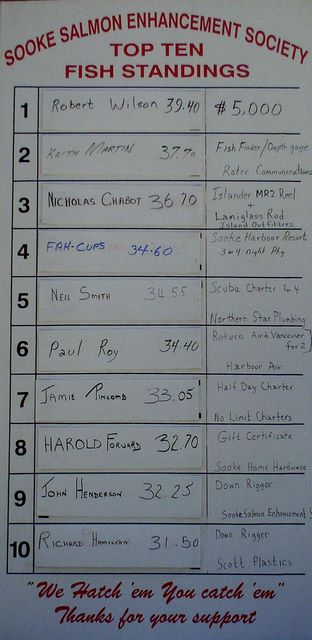 SOOKE SALMON ENHANCEMENT SOCIETY
TOP TEN
FISH STANDINGS
1 Robert Wilson 39.40 $5,000
2 KEITH MARTIN 37.70 Fish Finder/Depth gauge
Rotec Communications
3 NICHOLAS CHABOT 36 70 Islander MR2 Reel
+
Lamiglass Rod
Island Outfitters
4 FAH-CUPS 34.60 Sooke Harbour Resort
3 or 4 night Pkg
5 NEIL SMITH 34.55 Scuba Charter for 4
Northern Star Plumbing
6 Paul Roy 34.40 Return Air to Vancouver
for 2
Harbour Air
7 JAMIE PINCOMB 33.05 Half Day Charter
No Limit Charters
8 HAROLD FORWARD 32.70 Gift Certificate
Sooke Home Hardware
9 JOHN HENDERSON 32.25 Down Rigger
Sooke Salmon Enhancement S
10 RICHARD HAMILTON 31.50 Down Rigger
Scott Plastics
"We Hatch 'em You catch 'em"
Thanks for your support